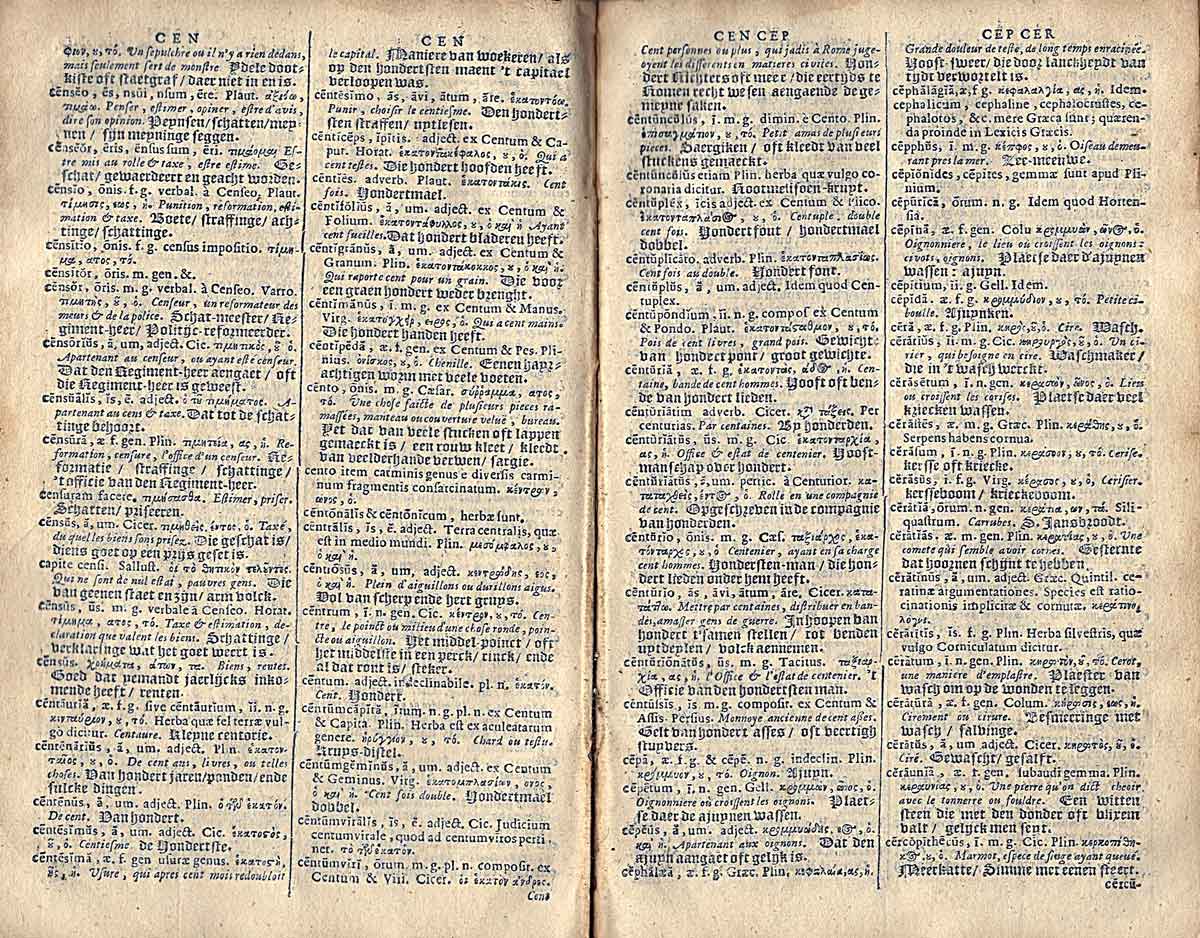 CEN
φων, ȣ, τό. Un sepulchre ou il n'y a rien dedans,
mais seulement sert de monstre Ydele doot-
kiste oft staetgraf / daer niet in en is.
cēnsĕo, ēs, nsŭi, nsum, ēre. Plaut. ἀξιόω,
Penser, estimer, opiner, estre d'avis,
dire son opinion. Peynsen / schatten / mey-
nen / sijn meyninge seggen.
cēnsĕŏr, ēris, ēnsus sum, ēri. τιμάομαι Es-
tre mis au rolle & taxe, estre estimé. Ge-
schat / gewaerdeert en geacht worden.
cēnsĭo, ōnis. f. g. verbal. à Censeo, Plaut.
τίμησις, εως, ἡ. Punition, reformation, esti-
mation & taxe. Boete / straffinge / ach-
tinge / schattinge.
cēnsĭtĭo, ōnis. f. g. census impositio.
μα, ατος, τό.
cēnsĭtŏr, ōris. m. gen. &.
cēnsŏr, ōris. m. g. verbal. à Censeo. Varro.
τιμητής, ȣ, ὁ. Censeur, un reformateur des
meurs & de la police. Schat-meester / Re-
giment-heer / Politije-reformeerder.
cēnsōrĭŭs, ă, um, adject. Cic. τιμητικός, ȣ, ὁ
Apartenant au censeur, ou ayant esté censeur.
Dat den Regiment-heer aengaet / oft
die Regiment-heer is geweest.
cēnsŭālĭs, ĭs, ĕ. adject. ὁ τȣ τιμήματος. A-
partenant au cens & taxe. Dat tot de schat-
tinge behoort.
cēnsūră, æ. f. gen. Plin. τιμητεία, ας, ἡ. Re-
formation, censure, l'office d'un censeur. Re-
formatie / straffinge / schattinge /
't officie van den Regiment-heer.
censuram facere. Estimer, priser.
Schatten / priseeren.
cēnsŭs, ă, um. Cicer. τιμηθείς, έντος, ὁ. Taxé,
duquel les biens sont prisez. Die geschat is /
diens goet op een prijs geset is.
capite censi. Sallust. οἱ τὸ
Qui ne sont de nul estat, pauvres gens. Die
van geenen staet en zijn / arm volck.
cēnsŭs, ūs. m. g. verbale à Censeo. Horat.
τίμημα, ατος, τό. Taxe & estimation, de-
claration que valent les biens. Schattinge /
verklaringe wat het goet weert is.
cēnsŭs. χρήματα, άτων, τα. Biens, rentes.
Goed dat yemandt jaerlijcks inko-
mende heeft / renten.
cēntāurĭă, æ. f. g. sive cēntāurĭum, ĭi. n. g.
κενταύριον, ȣ, τό. Herba quæ fel terræ vul-
go dicitur. Centaure. Kleyne centorie.
cēntēnārĭŭs, ă, um. adject. Plin.
ȣ, ὁ. De cent ans, livres, ou telles
choses. Van hondert jaren / ponden / ende
sulcke dingen.
cēntēnŭs, ă, um. adject. Plin. ἑκατόν.
De cent. Van hondert.
cēntēsĭmŭs, ă, um. adject. Cic. ἑκατοστός,
ȣ, ὁ. Centiesme de Hondertste.
cēntēsĭmă, æ. f. gen usuræ genus. ἑκατοστή,
ῆς, ἡ. Usure, qui apres cent mois redoubloit
CEN
le capital. Maniere van woekeren / als
op den hondertsten maent 't capitael
verloopen was.
cēntēsĭmo, ās, āvi, ātum, āre. ἑκατοντόω.
Punir, choisir le centiesme. Den hondert-
sten straffen / uytlesen.
cēntĭcēps, ĭpĭtis. adject. ex Centum & Ca-
put. Horat. ἑκατοντακέφαλος, ȣ, ὁ. Qui a
cent testes. Die hondert hoofden heeft.
cēntĭēs. adverb. Plaut. ἑκατοντάκις. Cent
fois. Hondertmael.
cēntĭfŏlĭŭs, ă, um. adject. ex Centum &
Folium. ἑκατοντάφυλλος, ȣ, ὁ καὶ ἡ Ayant
cent fueilles. Dat hondert bladeren heeft.
cēntĭgrānŭs, ă, um. adject. ex Centum &
Granum. Plin. ἑκατοντάκοκκος, ȣ, ὁ καὶ ἡ.
Qui raporte cent pour un grain. Die voor
een graen hondert weder brenght.
cēntĭmănŭs, ī. m. g. ex Centum & Manus.
Virg. ἑκατόγχειρ, ειρος, ὁ. Qui a cent mains.
Die hondert handen heeft.
cēntĭpĕdă, æ. f. gen. ex Centum & Pes. Pli-
nius. ὀνίσκος, ȣ, ὁ Chenille. Eenen hay-
rachtigen worm met veele voeten.
cēnto, ōnis. m. g. Cæsar. σύρραμμα, ατος,
τό. Une chose faicte de plusieurs pieces ra-
massées, manteau ou couverture veluë, bureau.
Yet dat van veele stucken oft lappen
gemaeckt is / een rouw kleet / kleedt
van veelderhande verwen / sargie.
cento item carminis genus è diversis carmi-
num fragmentis consarcinatum. κέντρων,
ωνος, ὁ.
cēntōnālĭs & cēntōnĭcum, herbæ sunt.
cēntrālĭs, ĭs, ĕ. adject. Terra centralis, quæ
est in medio mundi. Plin. μεσόμφαλος, ȣ,
ὁ καὶ ἡ.
cēntrōsŭs, ă, um, adject. κεντρώδης, εος,
ὁ καὶ ἡ. Plein d'aiguillons ou durillons aigus.
Vol van scherp ende hert gruys.
cēntrum, ī. n. gen. Cic. κέντρον, ȣ, τό. Cen-
tre, le poinct ou milieu d'une chose ronde, poin-
cte ou aiguillon. Het middel-poinct / oft
het middelste in een perck / rinck / ende
al dat ront is / steker.
cēntum. adject. indeclinabile. pl. n. ἑκατόν.
Cent. Hondert.
cēntumcăpĭtă, ĭtum. n. g. pl. n. ex Centum
& Capita. Plin. Herba est ex aculeatarum
genere. ἠρύγγιον, ȣ, τό. Chard ou testu.
Kruys-distel.
cēntumgĕmĭnŭs, ă, um. adject. ex Centum
& Geminus. Virg. ἑκατομπλασίων, ονος,
ὁ καὶ ἡ Cent fois double. Hondertmael
dobbel.
cēntumvĭrālĭs, ĭs, ĕ. adject. Cic. Judicium
centumvirale, quod ad centumviros perti-
net. τὸ ἑκατόν.
cēntumvĭri, ōrum. m. g. pl. n. composit. ex
Centum & Viri. Cicer. οἱ ἑκατὸν ἄνδρες.
Cent
CEN CEP
Cent personnes ou plus, qui jadis à Rome juge-
oyent les differents en matieres civiles. Hon-
dert Richters oft meer / die eertijds te
Romen recht wesen aengaende de ge-
meyne saken.
cēntūncŭlŭs, ī. m. g. dimin. è Cento. Plin.
ȣ, τό. Petit amas de plusieurs
pieces. Saergiken / oft kleedt van veel
stuckens gemaeckt.
cēntūncŭlŭs etiam Plin. herba quæ vulgo co-
ronaria dicitur. Rootmelisoen-kruyt.
cēntŭplĕx, ĭcis adject. ex Centum & Plico.
ȣ, ὁ. Centuple, double
cent fois. Hondertfout / hondertmael
dobbel.
cēntŭplĭcāto, adverb. Plin. ἑκατονταπλασίως.
Cent fois au double. Hondert fout.
cēntŭplŭs, ă, um, adject. Idem quod Cen-
tuplex.
cēntŭpōndĭum, ĭi. n. g. compos ex Centum
& Pondo. Plaut. ȣ, τό.
Pois de cent livres, grand pois. Gewicht
van hondert pont / groot gewichte.
cēntŭrĭă, æ. f. g. ἡ. Cen-
taine, bande de cent hommes. Hooft oft ben-
de van hondert lieden.
cēntŭrĭātim adverb. Cicer. Per
centurias. Par centaines. By honderden.
cēntŭrĭātŭs, ūs. m. g. Cic. ἑκατονταρχία,
ας, ἡ. Office & estat de centenier. Hooft-
manschap over hondert.
cēntŭrĭātŭs, ă, um. à Centurior.
ὁ. Rollé en une compagnie
de cent. Opgeschreven in de compagnie
van honderden.
cēntŭrĭo, ōnis. m. g. Cæs.
ȣ, ὁ Centenier, ayant en sa charge
cent hommes. Hondersten-man / die hon-
dert lieden onder hem heeft.
cēntŭrĭo, ās, āvi, ātum, āre. Cicer.
Mettre par centaines, distribuer en ban-
des, amasser gens de guerre. In hoopen van
hondert t'samen stellen / tot benden
uytdeylen / volck aennemen.
cēntŭrĭōnātŭs, ūs. m. g. Tacitus.
χία, ας, ἡ. l'Office & l'estat de centenier. 't
Officie van den hondertsten man.
cēntūssĭs, ĭs. m. g. composit. ex Centum &
Assis. Persius. Monnoye ancienne de cent asses.
Gelt van hondert asses / oft veertigh
stuyvers.
cēpă, æ. f. g. & cēpĕ. n. g. indeclin. Plin.
ȣ, τό. Oignon. Ajuyn.
cēpētum, ī. n. gen. Gell. ὁ.
Oignonniere ou croissent les oignons. Plaet-
se daer de ajuynen wassen.
cēpĕŭs, ă, um. adject. ὁ.
καὶ ἡ. Apartenant aux oignons. Dat den
ajuyn aangaet oft gelijk is.
cĕphălæă, æ. f. g. Græc. Plin. κεφαλαία, ας, ἡ.
CEP CER
Grande douleur de teste, de long temps enracinée.
Hooft-sweer / die door lanckheydt van
tijdt verwortelt is.
cĕphălăgĭă, æ, f. g. κεφαλαλγία, ας, ἡ. Idem.
cephalicum, cephaline, cephalocrustes, ce-
phalotos, &c. mere Græca sunt; quæren-
da proinde in Lexicis Græcis.
cēpphŭs, ī. m. g. κέπφος, ȣ, ὁ. Oiseau demeu-
rant pres la mer. Zee-meeuwe.
cēpĭōnĭdes, cēpĭtes, gemmæ sunt apud Pli-
nium.
cēpūtĭcă, ōrum. n. g. Idem quod Horten-
sia.
cēpīnă, æ. f. gen. Colu ὁ.
Oignonniere, le lieu ou croissent les oignons:
civots, oignons. Plaetse daer d'ajuynen
wassen: ajuyn.
cēpĭtium, ĭi. g. Gell. Idem.
cēpŭlă. æ. f. g. ȣ, τό. Petite ci-
boulle. Ajuynken.
cēră, æ. f. g. Plin. κηρός, ȣ, ὁ. Cire. Wasch.
cērārĭŭs, ĭi. m. g. Cic. ȣ, ὁ. Un ci-
rier, qui besoigne en cire. Waschmaker /
die in 't wasch werckt.
cĕrăsētum, ī. n. gen. ὁ. Lieu
ou croissent les cerises. Plaetse daer veel
kriecken wassen.
cĕrāstēs, æ. m. g. Græc. Plin. κεράστης, ȣ, ὁ.
Serpens habens cornua.
cĕrăsum, ī. n. g. Plin. κεράσιον, ȣ, τό. Cerise.
kersse oft kriecke.
cĕrăsŭs, ī. f. g. Virg. κέρασος, ȣ, ὁ. Cerisier.
kersseboom / krieckeboom.
cĕrătĭă, ōrum. n. gen. κεράτια, ων, τα. Sili-
quastrum. Carrubes. S. Jansbroodt.
cĕrătĭās, æ. m. gen. Plin. κερατίας, ȣ, ὁ. Une
comete qui semble avoir cornes. Gesternte
dat hoornen schijnt te hebben.
cĕrătĭnŭs, ă, um. adject. Græc. Quintil. ce-
ratinæ argumentationes. Species est ratio-
cinationis implicitæ & cornutæ.
cĕrătītĭs, ĭs. f. g. Plin. Herba silvestris, quæ
vulgo Corniculatum dicitur.
cērātum, ī. n. gen. Plin. ȣ, τό. Cerot,
une maniere d'emplastre. Plaester van
wasch om op de wonden te leggen.
cērātūră, æ. f. gen. Colum. κήρωσις, εως, ἡ.
Cirement ou cirure. Besmeeringe met
wasch / salvinge.
cērātŭs, ă, um adject. Cicer. κηρωτός, ȣ, ὁ.
Ciré. Gewascht / gesalft.
cĕrāunĭă, æ. f. gen. subaudi gemma. Plin.
κεραυνίας, ȣ, ἡ. Une pierre qu'on dict cheoir
avec le tonnerre ou fouldre. Een witten
steen die met den donder oft blixem
valt / gelijck men seyt.
cĕrcŏpĭthēcŭs, ī. m. g. Cic. Plin.
ȣ, ὁ. Marmot, espece de singe ayant queuë.
Meerkatte / Simme met eenen steert.
cĕrcŭ-